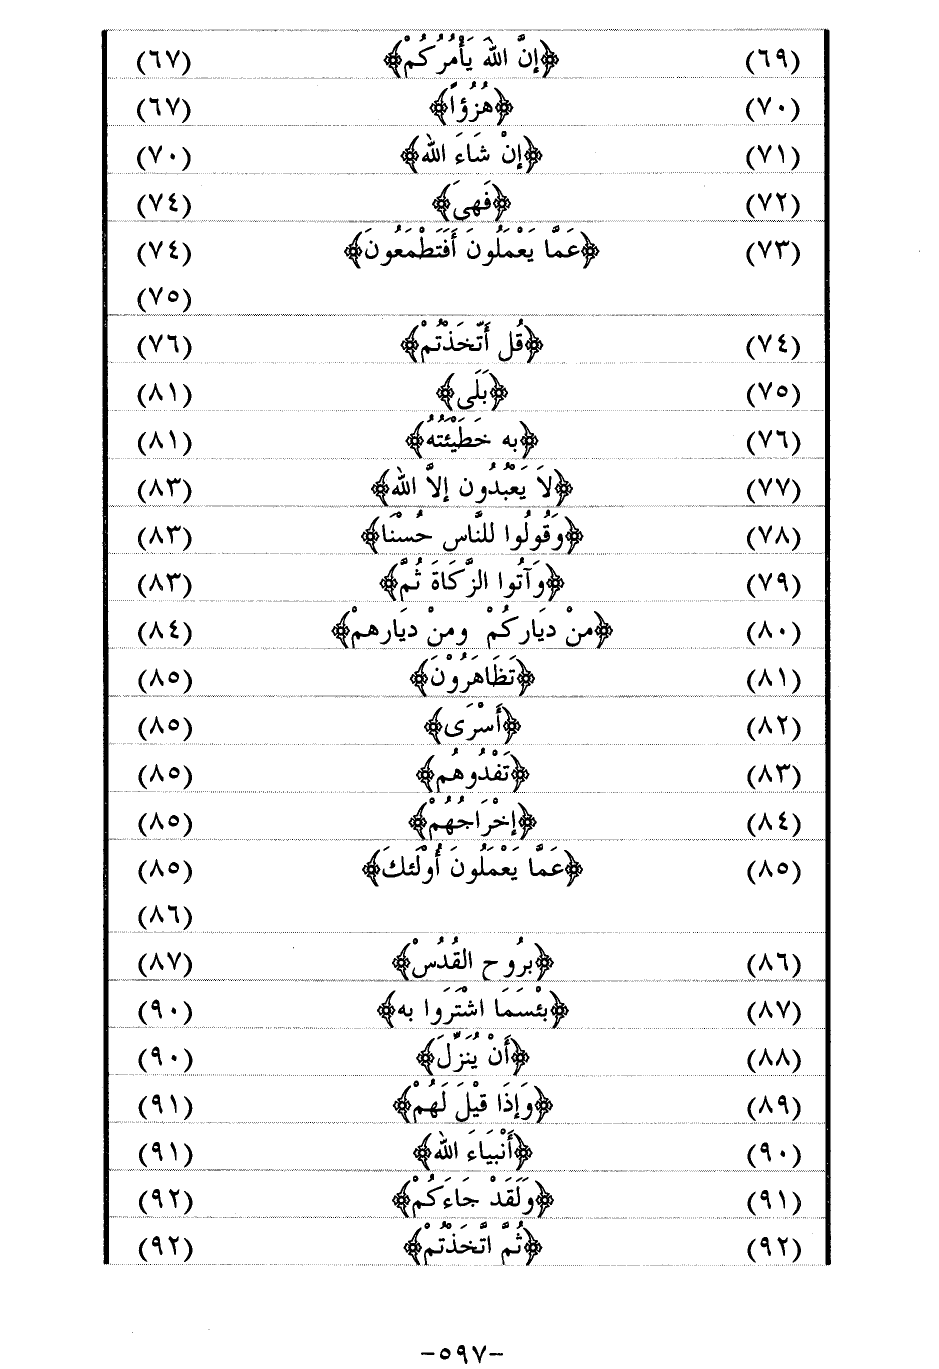 (٦٩) ﴿إنَّ اللهَ يَأْمُرُكُمْ﴾ (٦٧)
(٧٠) ﴿هُزُؤاً﴾ (٦٧)
(٧١) ﴿إنْ شَاءَ الله﴾ (٧٠)
(٧٢) ﴿فَهيَ﴾ (٧٤)
(٧٣) ﴿عَمَّا يَعْمَلُونَ أَفَتَطْمَعُونَ﴾ (٧٤)
(٧٥)
(٧٤) ﴿قُل أَتَّخَذْتُمْ﴾ (٧٦)
(٧٥) ﴿بَلَى﴾ (٨١)
(٧٦) ﴿به خَطَيْئَتُهُ﴾ (٨١)
(٧٧) ﴿لاَ يَعْبُدُون إلاَّ الله﴾ (٨٣)
(٧٨) ﴿وَقُولُوا للنَّاس حُسْنَا﴾ (٨٣)
(٧٩) ﴿وَآتُوا الزَّكَاةَ ثُمَّ﴾ (٨٣)
(٨٠) ﴿منْ ديَاركُمْ ومنْ ديَارهمْ﴾ (٨٤)
(٨١) ﴿تَظَاهَرُوْنَ﴾ (٨٥)
(٨٢) ﴿أَسْرَى﴾ (٨٥)
(٨٣) ﴿تَفْدُوهُم﴾ (٨٥)
(٨٤) ﴿إخْرَاجُهُمْ﴾ (٨٥)
(٨٥) ﴿عَمَّا يَعْمَلُونَ أُوْلَئكَ﴾ (٨٥)
(٨٦)
(٨٦) ﴿برُوح القُدُسْ﴾ (٨٧)
(٨٧) ﴿بئْسَمَا اشْتَرَوا به﴾ (٩٠)
(٨٨) ﴿أَنْ يُنَزِّلَ﴾ (٩٠)
(٨٩) ﴿وَإذَا قيْلَ لَهُمْ﴾ (٩١)
(٩٠) ﴿أَنْبيَاءَ الله﴾ (٩١)
(٩١) ﴿وَلَقَدْ جَاءَكُمْ﴾ (٩٢)
(٩٢) ﴿ثُمَّ اتَّخَذْتُمْ﴾ (٩٢)
-٥٩٧-